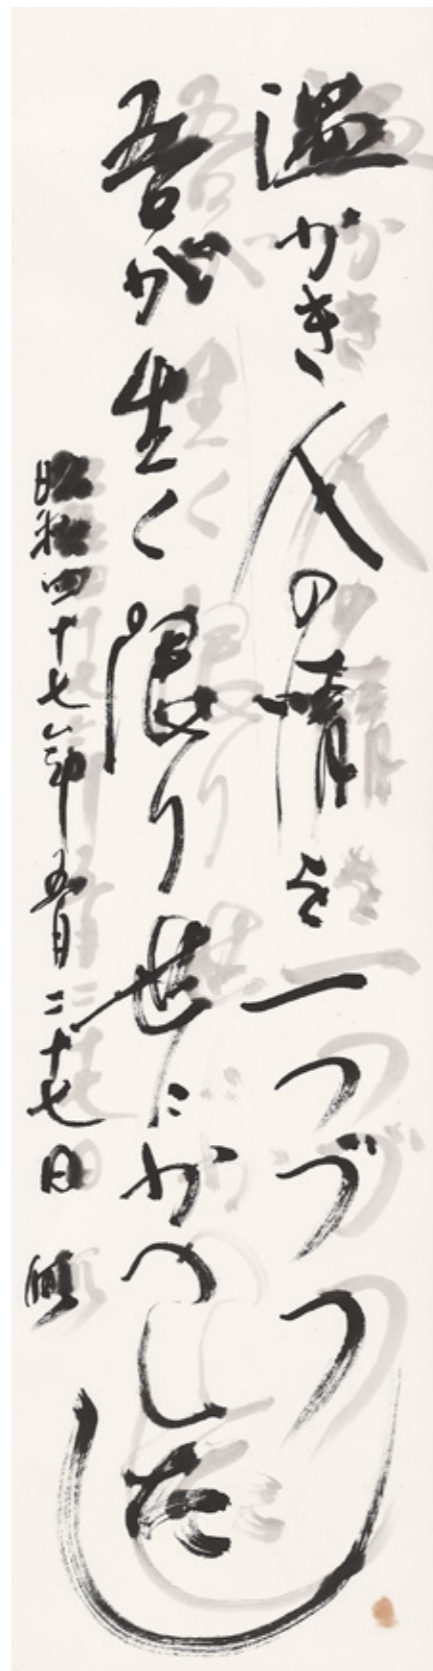 温かき人の情を一つづつ
吾が生く限り世にかへしたし
昭和四十七年五月二十七日